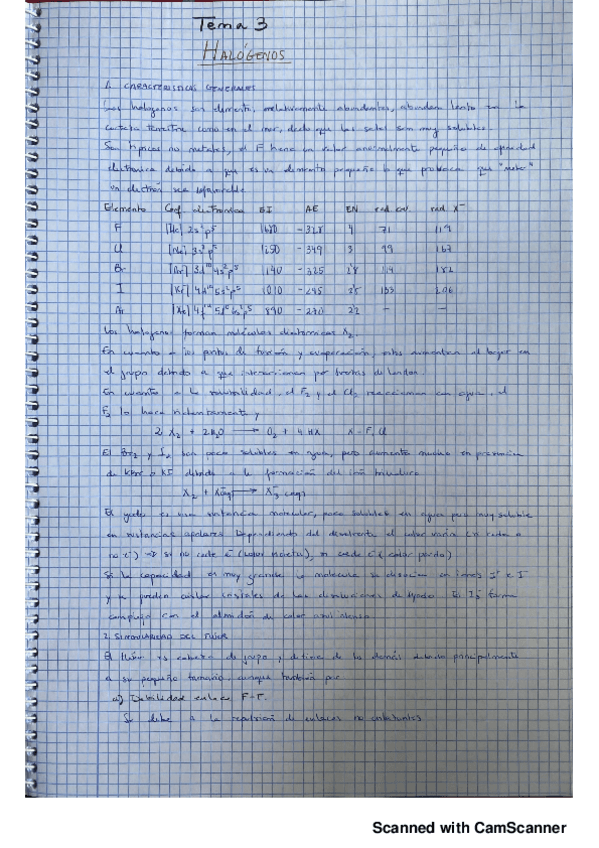 Tema 3
HALÓGENOS
1. CARACTERISTICAS GENERALES
Los halogenos son elementos, relativamente abundantes, abundan tanto en la
corteza terrestre como en el mar, dado que las sales son muy solubles.
Son típicos no metales, el F tiene un valor anormalmente pequeño de afinidad
electronica debido a que es un elemento pequeño lo que provoca que "meter"
un electrón sea
Elemento Conf. electronica EI AE EN rad cov. rad X⁻
F [He] 2s² p⁵ 1680 -328 4 71 119
Cl [Ne] 3s² p⁵ 1250 -349 3 99 167
Br [Ar] 3d¹⁰ 4s² p⁵ 1140 -325 2'8 114 182
I [Kr] 5s² p⁵ 1010 -295 2'5 133 206
At [Xe] 4f¹⁴ 5d¹⁰ 6s² p⁵ 890 -270 2'2 - -
Los halogenos forman moléculas diatomicas X₂.
En cuanto a los puntos de fusión y evaporación, estos aumentan al bajar en
el grupo debido a que interaccionan por fuerzas de London.
En cuanto a la reactividad, el F₂ y el Cl₂ reaccionan con agua, el
F₂ lo hace violentamente y
2 X₂ + 2H₂O → O₂ + 4 HX X = F, Cl
El Br₂ y I₂ son poco solubles en agua, pero aumenta mucho en presencia
de KBr o KI debido a la formación del ión trihaluro
X₂ + X⁻(aq) → X₃⁻ (aq)
El yodo es una sustancia molecular, poco soluble en agua pero muy soluble
en sustancias apolares. Dependiendo del disolvente el color varia (si cede e⁻
no e⁻) ⇒ si no cede e⁻ (color violeta), si cede e⁻ (color pardo)
Si la capacidad es muy grande la molecula se disocia en iones I⁺ e I⁻
y se pueden aislar cristales de las disoluciones de yodo. El I₃⁻ forma
complejo con el almidón de color azul intenso
2. SINGULARIDAD DEL FLÚOR
El flúor es cabeza de grupo, y difiere de los demás debido principalmente
a su pequeño tamaño, aunque también por
a) Debilidad enlace F-F.
Se debe a la repulsión de enlaces no enlazantes
Scanned with CamScanner